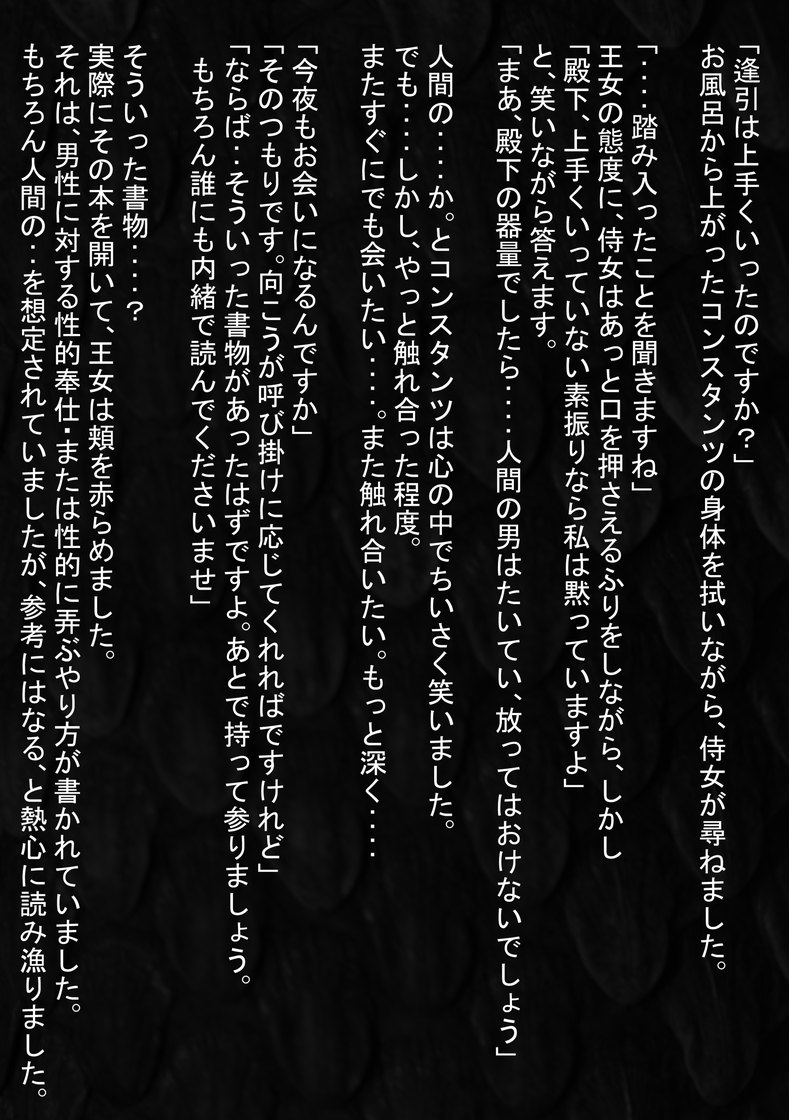 「逢引は上手くいったのですか？」
お風呂から上がったコンスタンツの身体を拭いながら、侍女が尋ねました。
「‥‥踏み入ったことを聞きますね」
王女の態度に、侍女はあっと口を押さえるふりをしながら、しかし
「殿下、上手くいっていない素振りなら私は黙っていますよ」
と、笑いながら答えます。
「まあ、殿下の器量でしたら‥‥人間の男はたいてい、放ってはおけないでしょう」
人間の‥‥か。とコンスタンツは心の中でちいさく笑いました。
でも‥‥しかし、やっと触れ合った程度。
またすぐにでも会いたい‥‥。また触れ合いたい。もっと深く‥‥
「今夜もお会いになるんですか」
「そのつもりです。向こうが呼び掛けに応じてくれればですけれど」
「ならば‥そういった書物があったはずですよ。あとで持って参りましょう。
もちろん誰にも内緒で読んでくださいませ」
そういった書物‥‥？
実際にその本を開いて、王女は頬を赤らめました。
それは、男性に対する性的奉仕・または性的に弄ぶやり方が書かれていました。
もちろん人間の‥を想定されていましたが、参考にはなる、と熱心に読み漁りました。